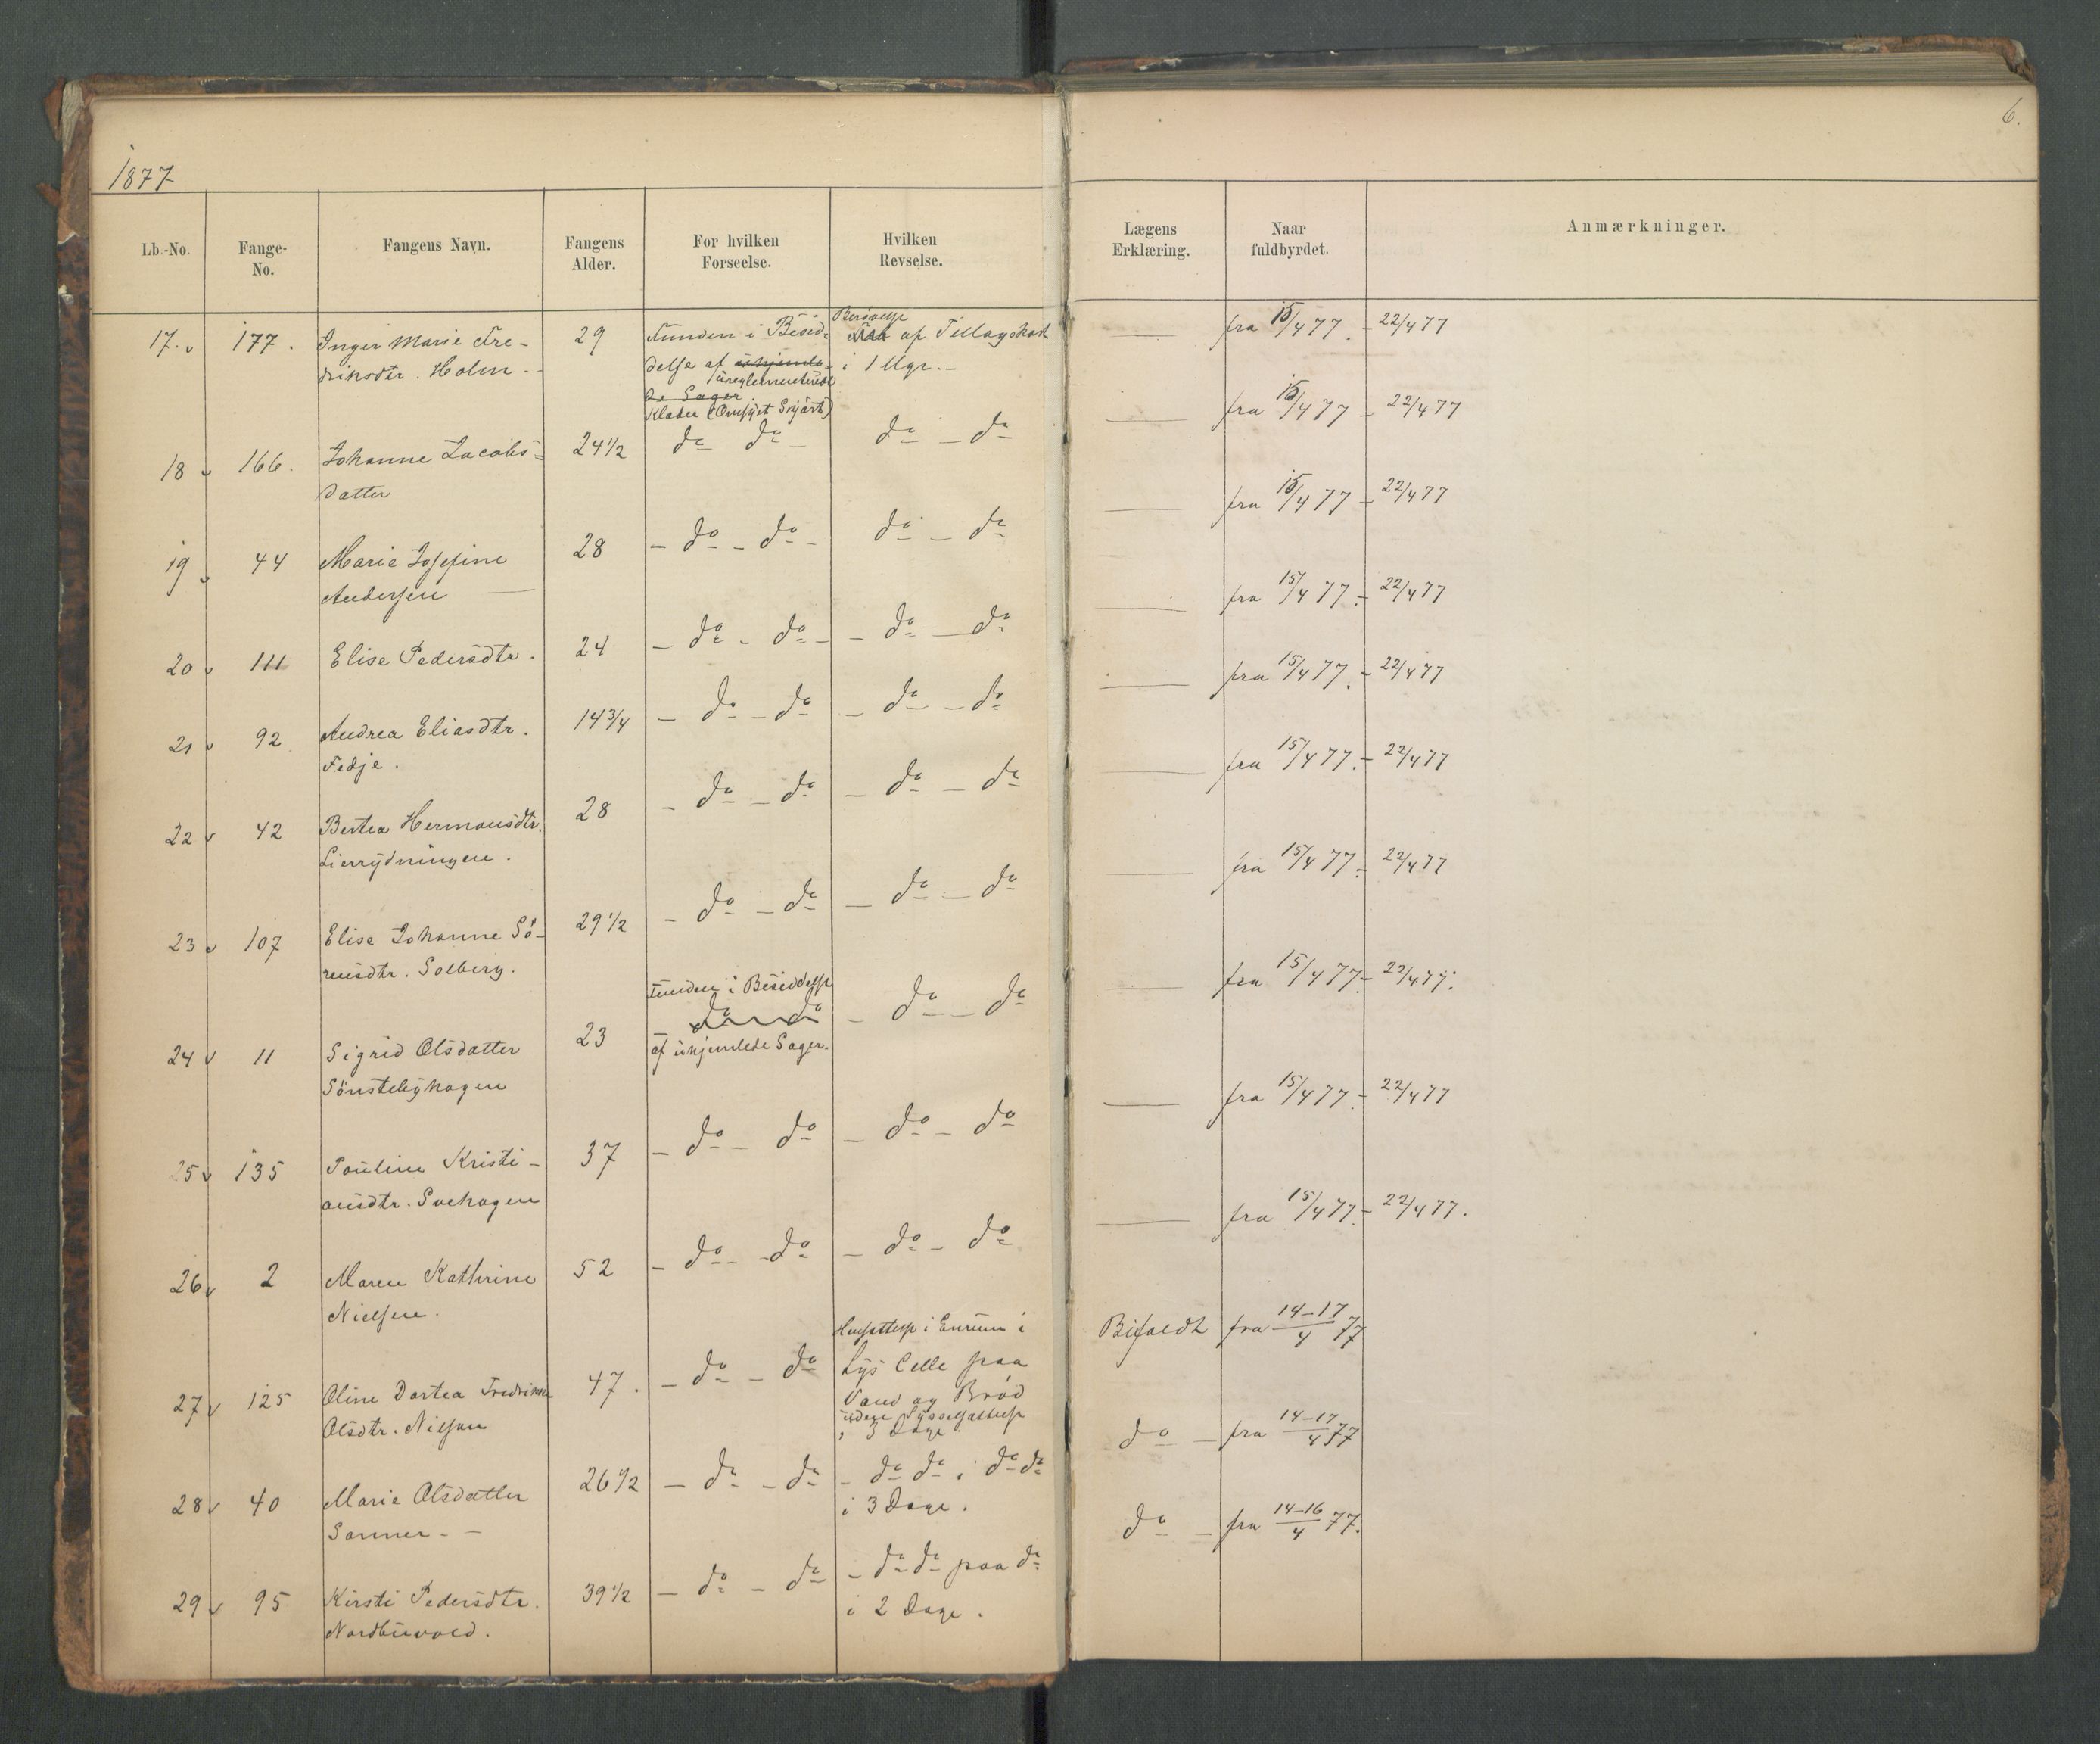 1877
6.
Lb.-No. Fange-No. Fangens Navn. Fangens Alder. For hvilken Forseelse. Hvilken Revselse. Lægens Erklæring. Naar fuldbyrdet. Anmærkninger.
17. 177. Inger Marie Fre- 29 Funden i Besid- Berøvelse af Tillægskost — fra 15/4 77. - 22/4 77
driksdtr. Holm. - delse af i 1 Uge. -
ureglementerede
de Sager
Klæder (Omsyet Skjört)
18 166. Johanne Jacobs- 24 1/2 do do - do - do — fra 15/4 77 - 22/4 77
datter
19 44 Marie Josefine 28 - do - do - do - do — fra 15/4 77 - 22/4 77
Andersen —
20 111 Elise Pedersdtr. 24 - do - do - - do - do — fra 15/4 77. - 22/4 77
21 92 Andrea Eliasdtr. 14 3/4 - do - do - do - do — fra 15/4 77. - 22/4 77
Fedje.
22 42 Bertea Hermansdtr. 28 - do - do - do - do — fra 15/4 77. - 22/4 77
Lierrydningen.
23 107 Elise Johanne Sö- 29 1/2 - do - do - do - do — fra 15/4 77. - 22/4 77
rensdtr. Solberg.
Funden i Besiddelse
24 11 Sigrid Olsdatter 23 - do - do - do - do — fra 15/4 77. - 22/4 77.
Sönstebyhagen af uhjemlede Sager.
25 135 Pauline Kristi- 37 - do - do - do - do — fra 15/4 77. - 22/4 77
ansdtr. Svehagen
26 2 Maren Kathrine 52 - do - do - do - do — fra 15/4 77. - 22/4 77.
Nielsen.
Hensættelse i Enrum i
27 125 Oline Dortea Fredrikke 47. - do - do Lys Celle paa Bifaldt fra 14-17/4 77
Olsdtr. Nilsen Vand og Bröd
uden Sysselsættelse
i 3 Dage
28 40 Marie Olsdatter 26 1/2 - do - do - do do i do do do - fra 14-17/4 77
Sanner - - i 3 Dage.
29 95 Kirsti Pedersdtr. 39 1/2 - do - do - do do paa do do - fra 14-16/4 77.
Nordbuvold. i 2 Dage.